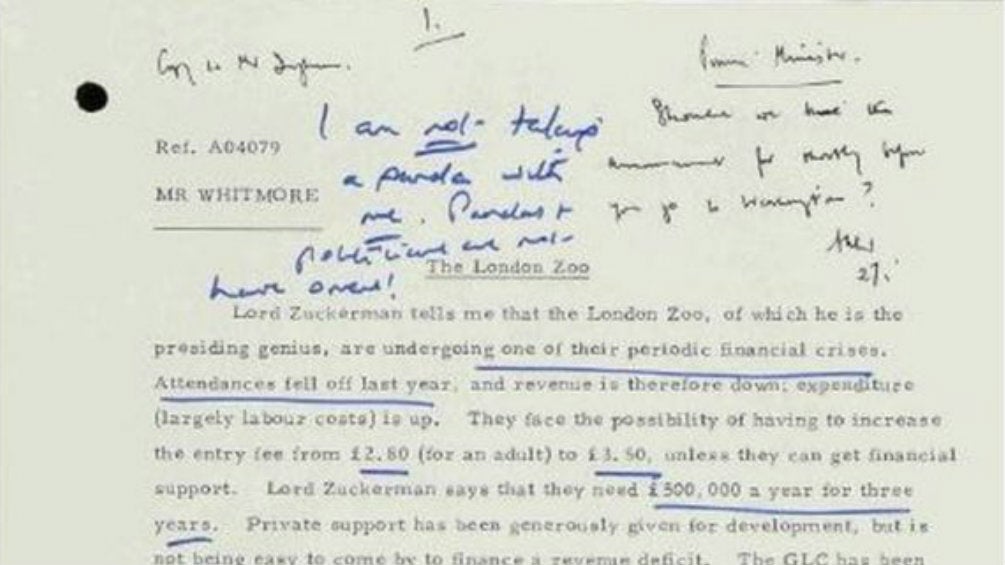 1.
Copy to Mr Ingham.
Prime Minister.
I am not taking
a panda with
me. Pandas &
politicians are not
happy omens!
you go to Washington?
27.
Ref. A04079
MR WHITMORE
The London Zoo
Lord Zuckerman tells me that the London Zoo, of which he is the
presiding genius, are undergoing one of their periodic financial crises.
Attendances fell off last year, and revenue is therefore down; expenditure
(largely labour costs) is up. They face the possibility of having to increase
the entry fee from £2.80 (for an adult) to £3.50, unless they can get financial
support. Lord Zuckerman says that they need £500,000 a year for three
years. Private support has been generously given for development, but is
not being easy to come by to finance a revenue deficit. The GLC has been